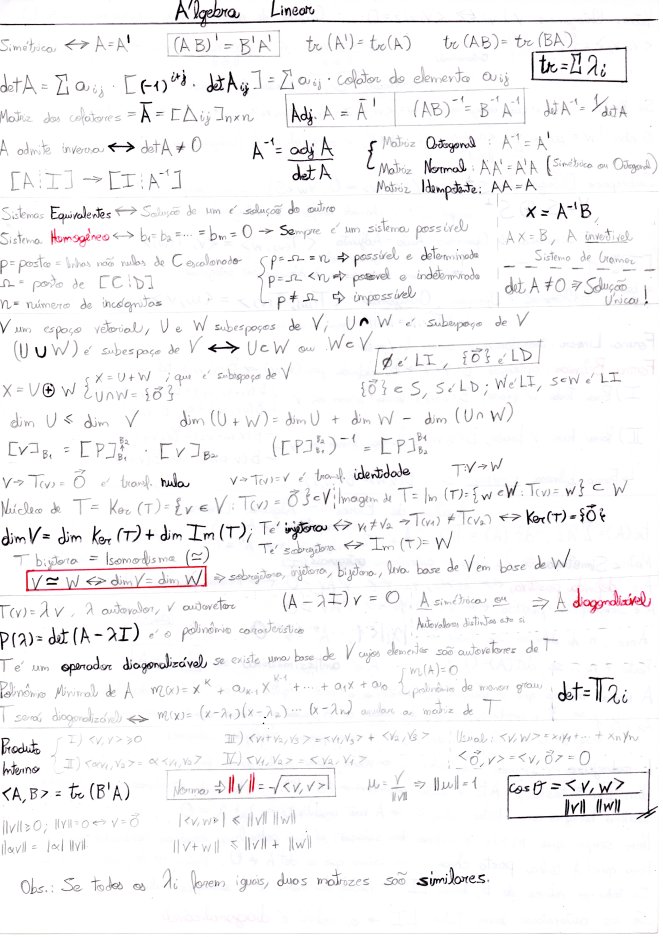 Álgebra Linear
Simétrica ↔ A=A' (AB)' = B'A' tr(A') = tr(A) tr(AB) = tr(BA)
tr = Σ λi
det A = Σ aij · [(-1)^{i+j} · det Aij] = Σ aij · cofator do elemento aij
Matriz dos cofatores = Ā = [Δij]nxn Adj. A = Ā' (AB)⁻¹ = B⁻¹A⁻¹ det A⁻¹ = 1/det A
A admite inversa ↔ det A ≠ 0 A⁻¹ = adj A / det A
Matriz Ortogonal : A⁻¹ = A'
Matriz Normal : AA' = A'A (Simétrica ou Ortogonal)
Matriz Idempotente: AA = A
[A|I] → [I|A⁻¹]
Sistemas Equivalentes ↔ Solução de um é solução do outro
Sistema Homogêneo ↔ b₁= b₂ = ... = bm = 0 → Sempre é um sistema possível
X = A⁻¹B
AX = B, A invertível
Sistema de Cramer
det A ≠ 0 ⇒ Solução Única!
p = posto = linhas não nulas de C escalonado
Ω = posto de [C|D]
n = número de incógnitas
p = Ω = n ⇒ possível e determinado
p = Ω < n ⇒ possível e indeterminado
p ≠ Ω ⇒ impossível
V um espaço vetorial, U e W subespaços de V; U∩W é subespaço de V
(U∪W) é subespaço de V ↔ U⊂W ou W⊂V
∅ é LI, {0⃗} é LD
X = U⊕W { X = U+W ; que é subespaço de V
U∩W = {0⃗}
{0⃗} ∈ S, S é LD; W é LI, S⊂W é LI
dim U ≤ dim V dim (U+W) = dim U + dim W - dim (U∩W)
[v]B₁ = [P]B₁^B₂ · [v]B₂ ([P]B₁^B₂)⁻¹ = [P]B₂^B₁
v→T(v) = 0⃗ é transf. nula v→T(v)=v é transf. identidade T:V→W
Núcleo de T = Ker(T) = {v ∈ V : T(v) = 0⃗} ⊂ V; Imagem de T = Im(T) = {w ∈ W : T(v) = w} ⊂ W
dim V = dim Ker(T) + dim Im(T); T é injetora ↔ v₁≠v₂ → T(v₁) ≠ T(v₂) ↔ Ker(T) = {0⃗}
T é sobrejetora ↔ Im(T) = W
T bijetora = Isomorfismo (≃)
V ≃ W ↔ dim V = dim W ⇒ sobrejetora, injetora, bijetora, leva base de V em base de W
T(v) = λv, λ autovalor, v autovetor (A - λI)v = 0 A simétrica ou ⇒ A diagonalizável
Autovalores distintos entre si
P(λ) = det(A - λI) é o polinômio característico
T é um operador diagonalizável se existe uma base de V cujos elementos são autovetores de T
Polinômio Minimal de A m(x) = x^k + a_{k-1}x^{k-1} + ... + a₁x + a₀ { m(A) = 0
polinômio de menor grau
det = Π λi
T será diagonalizável ↔ m(x) = (x-λ₁)(x-λ₂)...(x-λr) anular a matriz de T
Produto Interno
I) <v,v> ≥ 0 III) <v₁+v₂,v₃> = <v₁,v₃> + <v₂,v₃> Usual: <v,w> = x₁y₁+...+xnyn
II) <αv₁,v₂> = α<v₁,v₂> IV) <v₁,v₂> = <v₂,v₁> <0⃗,v> = <v,0⃗> = 0
<A,B> = tr(B'A) Norma ⇒ ||v|| = √<v,v> u = v/||v|| ⇒ ||u|| = 1 cos θ = <v,w> / ||v|| ||w||
||v|| ≥ 0; ||v|| = 0 ↔ v = 0⃗ |<v,w>| ≤ ||v|| ||w||
||αv|| = |α| ||v|| ||v+w|| ≤ ||v|| + ||w||
Obs.: Se todos os λi forem iguais, duas matrizes são similares.